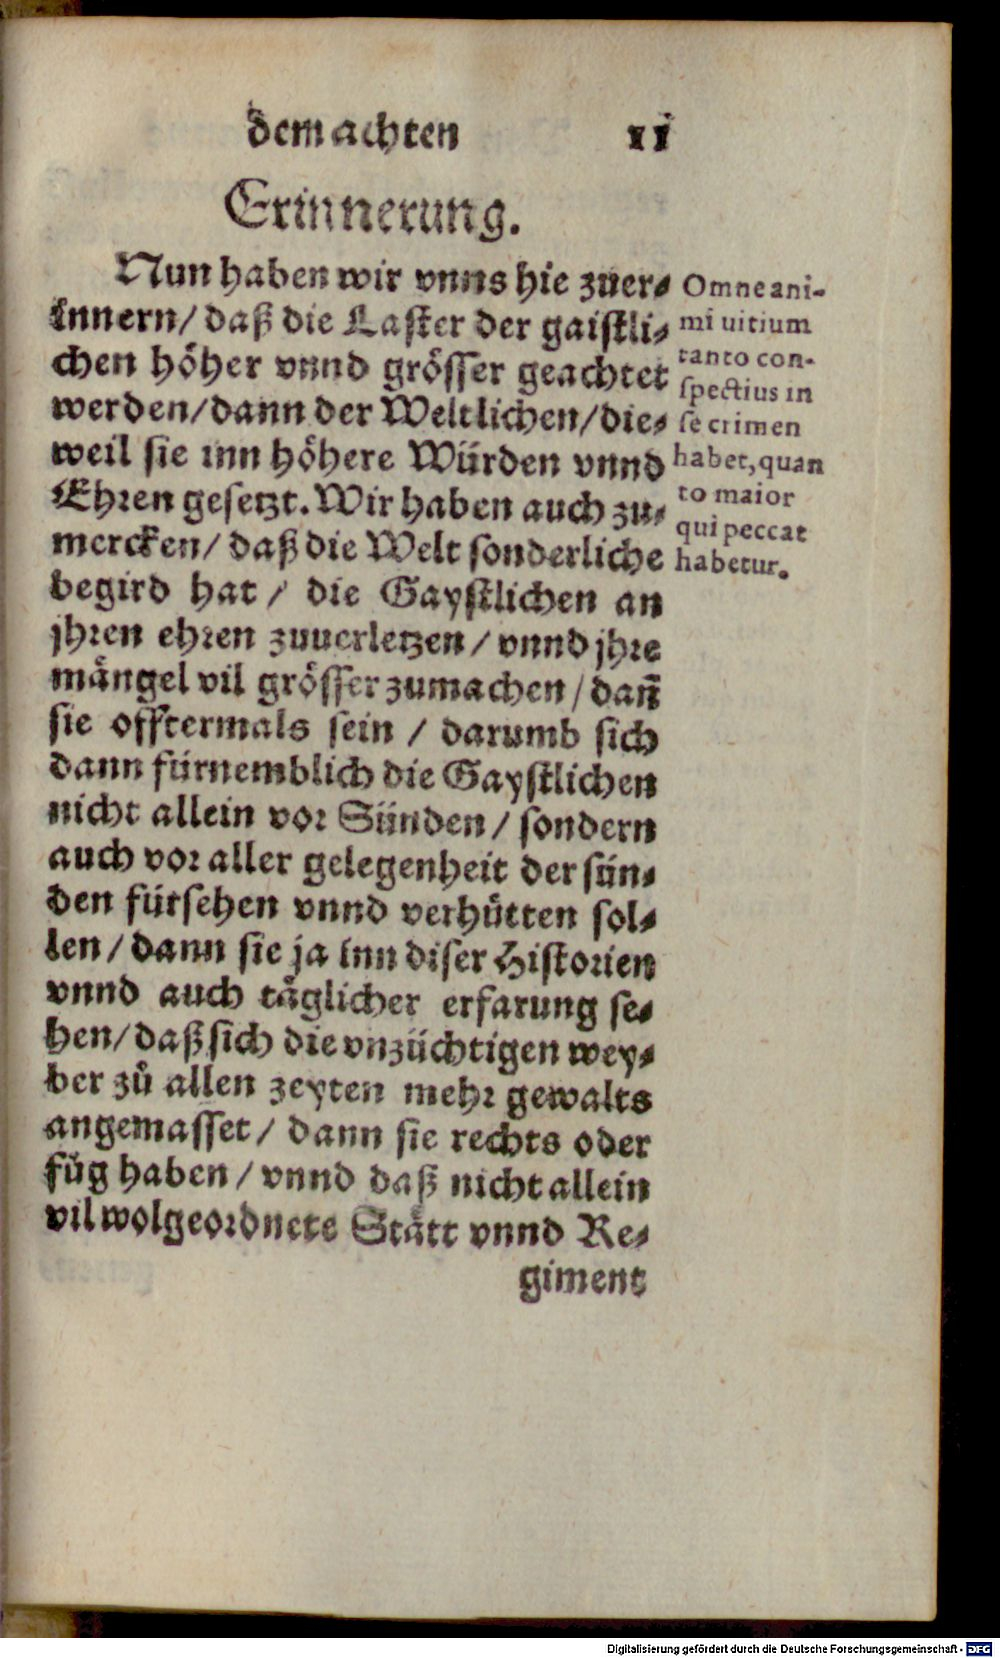 dem achten 11
Erinnerung.
Nun haben wir vnns hie zuer⸗
innern/ daß die Laster der gaistli⸗
chen höher vnnd grösser geachtet
werden/dann der Weltlichen/die⸗
weil sie inn höhere Würden vnnd
Ehren gesetzt. Wir haben auch zu⸗
mercken/ daß die Welt sonderliche
begird hat / die Gaystlichen an
jhren ehren zuuerletzen / vnnd jhre
mängel vil grösser zumachen / dañ
sie offtermals sein / darumb sich
dann fürnemblich die Gaystlichen
nicht allein vor Sünden / sondern
auch vor aller gelegenheit der sün⸗
den fürsehen vnnd verhütten sol⸗
len / dann sie ja inn diser Historien
vnnd auch täglicher erfarung se⸗
hen/ daß sich die vnzüchtigen wey⸗
ber zů allen zeyten mehr gewalts
angemasset / dann sie rechts oder
fůg haben / vnnd daß nicht allein
vil wolgeordnete Stätt vnnd Re⸗
giment
Omne ani-
mi uitium
tanto con-
spectius in
se crimen
habet, quan
to maior
qui peccat
habetur.
Digitalisierung gefördert durch die Deutsche Forschungsgemeinschaft - DFG